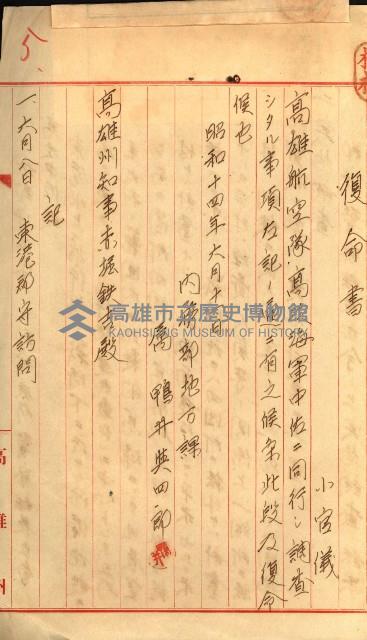 復命書
小官儀
高雄航空隊高橋海軍中佐ニ同行シ調査
シタル事項左記ノ通ニ有之候条此段及復命
候也
昭和十四年六月十日
内務部地方課
属 鴨井英四郎
高雄州知事赤堀鉄吉殿
記
一、六月八日 東港郡守訪問
高雄州
高雄市立歷史博物館
KAOHSIUNG MUSEUM OF HISTORY